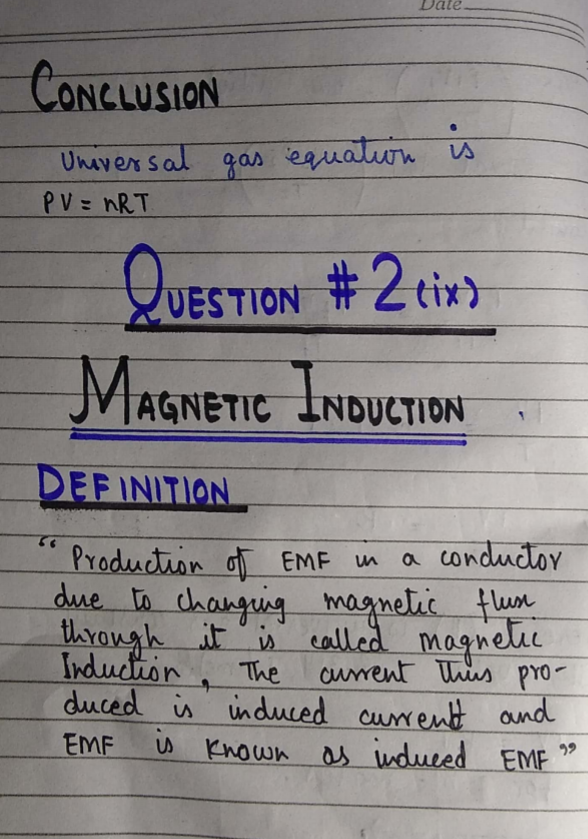 Date
CONCLUSION
Universal gas equation is
PV = nRT
QUESTION # 2 (ix)
MAGNETIC INDUCTION
DEFINITION
“ Production of EMF in a conductor
due to changing magnetic flux
through it is called magnetic
Induction, The current thus pro-
duced is induced current and
EMF is known as induced EMF ”